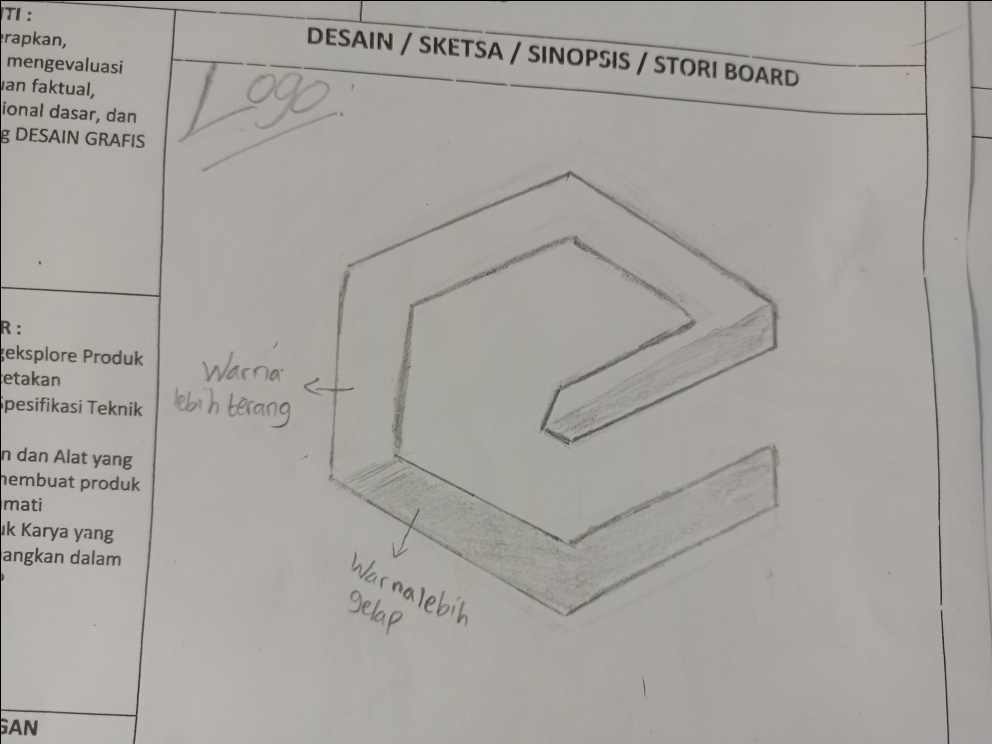 ITI :
erapkan,
mengevaluasi
uan faktual,
ional dasar, dan
g DESAIN GRAFIS
R :
geksplore Produk
cetakan
Spesifikasi Teknik
n dan Alat yang
membuat produk
mati
uk Karya yang
angkan dalam
GAN
DESAIN / SKETSA / SINOPSIS / STORI BOARD
Logo
Warna
lebih terang
Warna lebih
gelap